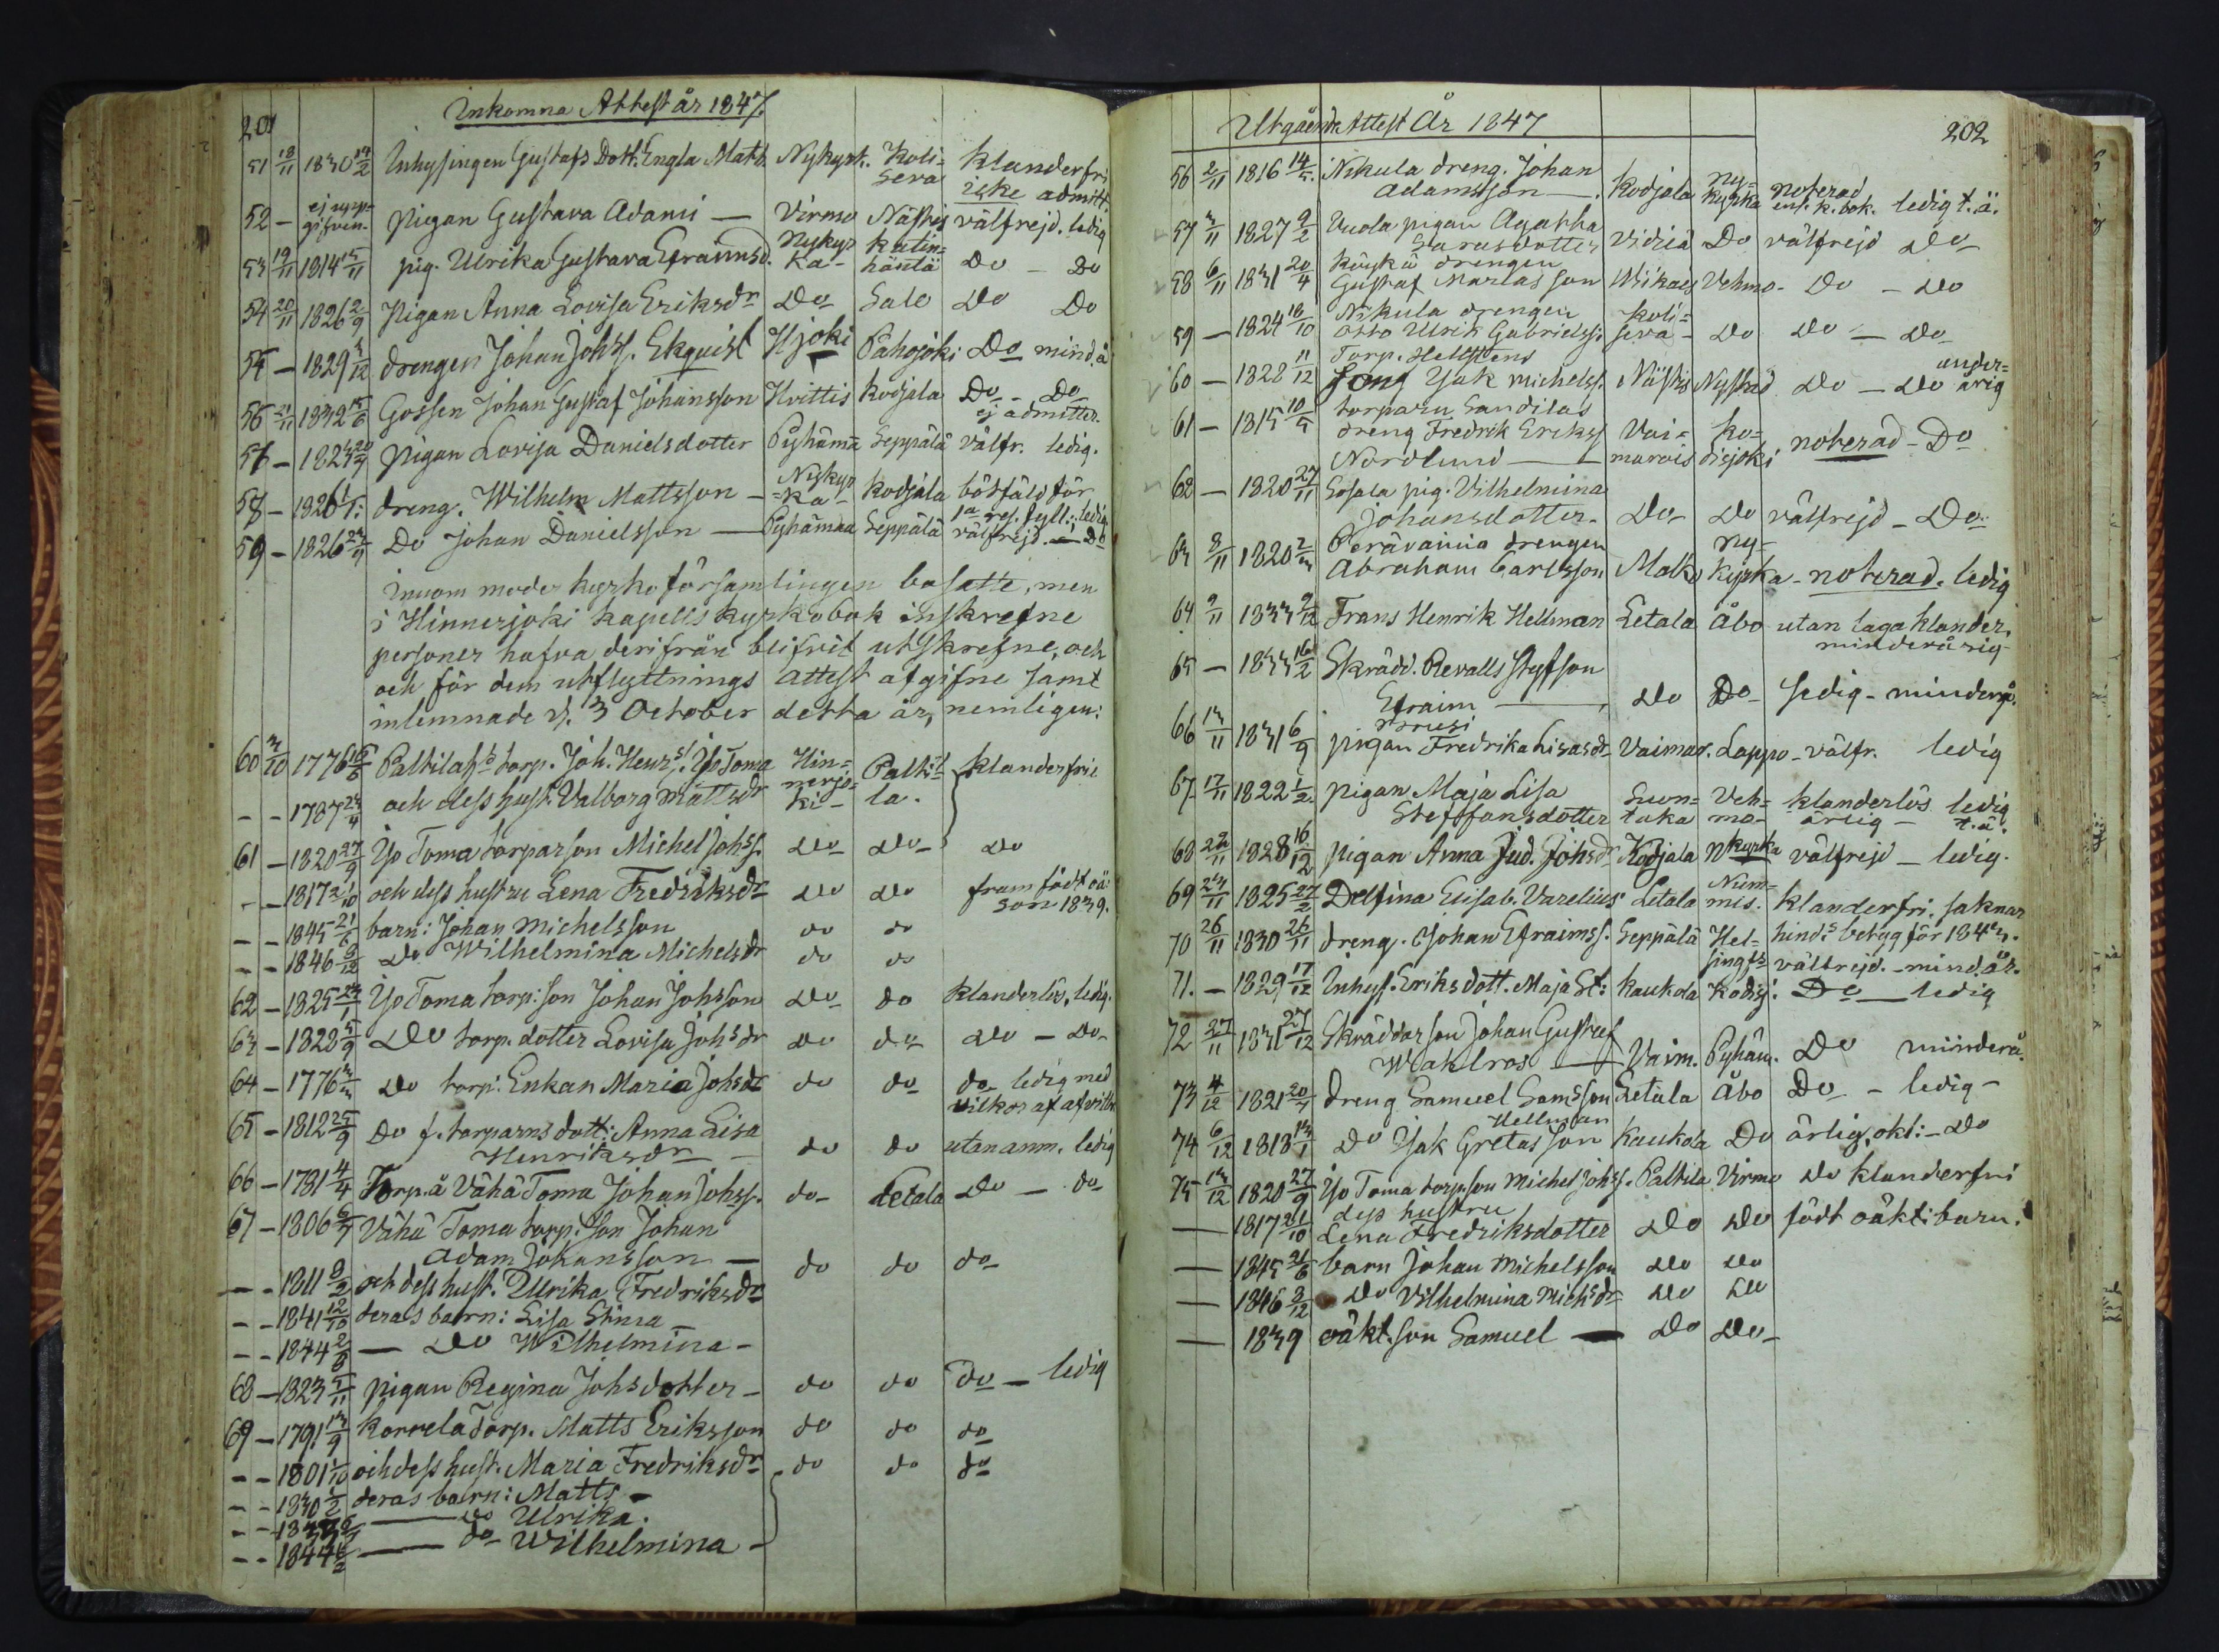 201
Inkomna Attest år 1847.
51 18/11 1830 14/2 Inhysingen Gustafs Dott. Engla Matt. Nykyrk. Koli= klanderfri
sera icke admitt.
52 — ej upp=
gifven. pigan Gustava Adami — Virmo Nästis välfrejd. ledig
53 19/11 1814 15/11 pig. Ulrika Gustava Efraimsd. Nykyr Katin=
ka - häntä Do - Do
54 20/11 1826 2/9 Pigan Anna Lovisa Eriksdr Do Salo Do Do
55 — 1829 3/12 drengen Johan Johss. Ekquist Hjoki Pahojoki Do mind.å
56 21/11 1832 15/6 Gossen Johan Gustaf Johansson Hvittis Kodjala Do - Do
ej admitter.
57 — 1824 20/9 pigan Lovisa Danielsdotter Pyhämaa Seppälä välfr. ledig.
58 — 1826 dreng. Wilhelm Mattsson — Nykyr
=ka- Kodjala bötfäld för
1a res. fyll.: ledig
59 — 1826 Do Johan Danielsson — Pyhämaa Seppälä välfrejd. — Do
Inuom moder kyrko församlingen bosatte, men
i Hinnerjoki kapells kyrkobok inskrefne
personer hafva derifrån blifvit utskrefne, och
och för dem utflyttnings attest afgifne samt
inlemnade d. 3 October detta år, nemligen:
60 3/10 1776 16/6 Paltilah torp. Joh. Henrs. Yo Toma Hin= Paltil klanderfrie
nerjo=
- - 1787 24/4 och dess hust. Valborg Mattsdr ki - la.
61 — 1820 27/9 Yo Toma torparson Michel Johss. Do Do Do
- - 1817 21/10 och dess hustru Lena Fredriksdr Do Do fram födt oä.
son 1839.
- - 1845 21/6 barn: Johan Michelsson do do
- - 1846 8/12 Do Wilhelmina Michelsdr do do
62 — 1825 24/1 Yo Toma torp: son Johan Johsson Do do klanderlös, ledig.
63 — 1828 5/9 Do torp. dotter Lovisa Johsdr Do do Do - Do
64 — 1776 3/3 Do torp: Enkan Maria Johsdr do do do ledig med
vilkor af afvittr.
65 — 1812 25/9 Do f. torparns dott: Anna Lisa
Henriksdr — do do utan anm. ledig
66 — 1781 4/4 Torp. å Vähä Toma Johan Johss. do Letala Do — do
67 — 1806 6/7 Vähä Toma torp. son Johan
Adam Johansson — do do do
- - 1811 8/2 och dess hust. Ulrika Fredriksdr
- - 1841 12/10 deras barn: Lisa Stina
- - 1844 2/8 — Do Wilhelmina -
68 — 1823 5/11 pigan Regina Johsdotter - do do do — ledig
69 — 1791 13/9 Korrela torp. Matts Eriksson do do do
- - 1801 1/10 och dess hust. Maria Fredriksdr do do do
- - 1830 1/2 deras barn: Matts -
- - — do Ulrika.
- - 1844 — do Wilhelmina -
202
Utgående Attest År 1847
56 2/11 1816 14/5 Nikula dreng. Johan
Adamsson — Kodjala ny=
kyrka noterad
enl. k. bok. ledig t. ä.
57 3/11 1827 9/2 Vuola pigan Agatha
Sarasdotter Vidiiä Do välfrejd Do
58 6/11 1831 20/4 Köykä drengen
Gustaf Mariasson Wikais Vehmo - Do - Do
59 — 1824 18/10 Nikula drengen
Otto Ulrik Gabrielss. Koli=
sera - Do Do — Do
60 — 1828 11/12 Torp. Hellstens
Isak Michelss. Nästis Nystad Do - Do under=
årig
61 — 1815 10/5 torparn Sandilas
dreng Fredrik Erikss
Nordlund — Vai=
marois ko=
disjoki noterad - Do
62 — 1820 27/11 Sosala pig. Vilhelmina
Johansdotter. Do Do välfrejd - Do
63 8/11 1820 2/3 Perävainio drengen
Abraham Carlsson Malko ny=
kyrka - noterad. ledig
64 9/11 1833 9/12 Frans Henrik Hellman Letala Åbo utan laga klander,
minderårig
65 — 1833 16/2 Skrädd. Revalls styfson
Efraim — Do Do ledig - minderå.
66 13/11 1831 6/9 Prusi
pigan Fredrika Lisasdr Vaimar. Lappo - välfr. ledig
67 17/11 1822 1/2 pigan Maja Lisa
Steffansdotter Suon=
taka Veh=
mo - klanderlös ledig
ärlig - t. ä.
68 22/11 1828 16/12 pigan Anna Jud. Johsdr Kodjala Nkyrka välfrejd - ledig.
69 23/11 1825 27/2 Delfina Elisab. Varelius Letala Num=
mis. klanderfri, saknar
70 26/11 1830 26/11 dreng. Johan Efraimss. Seppälä Hel=
singfs hinds betyg för 1843.
välfrejd. - mind.år.
71. — 1829 17/12 Inhys. Eriks dott. Maja St: Kaukola Kodisj. Do — ledig
72 27/11 1831 27/12 Skräddarson Johan Gustaf
Wahlros — Vaim. Pyhäm. Do minderå.
73 4/12 1821 20/7 Dreng Samuel Samsson Letala Åbo Do - ledig -
74 6/12 1818 13/1 Hellman
Do Isak Gretasson Kaukola Do ärlig, okt: - Do
75 13/12 1820 27/9 Yo Toma torpson Michel Johss. Paltila Virmo Do klanderfri
— 1817 21/10 dess hustru
Lena Fredriksdotter Do Do födt oäkt: barn.
— 1845 21/6 barn Johan Michelsson Do Do
— 1846 8/12 Do Vilhelmina Michsdr Do Do
— 1839 oäkt. son Samuel — Do Do